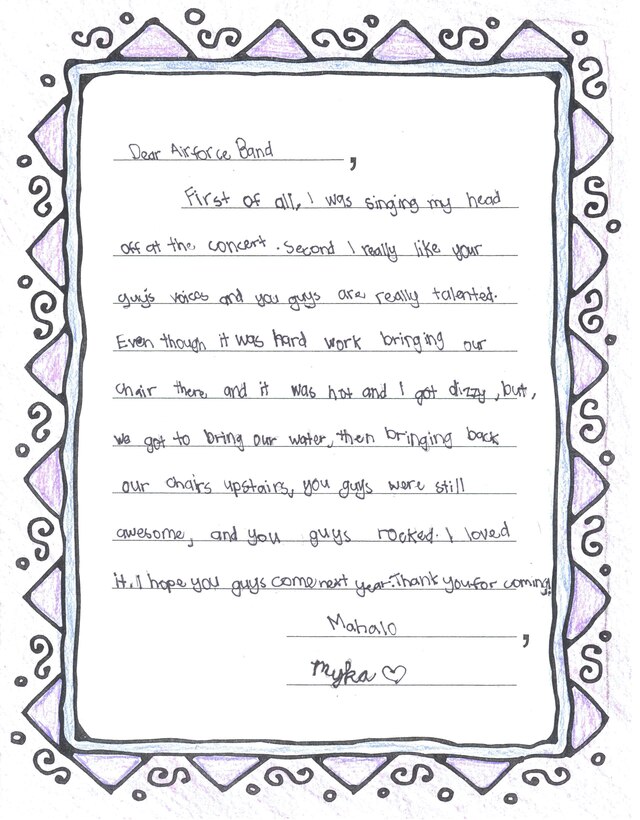 Dear Airforce Band,
First of all, I was singing my head
off at the concert. Second I really like your
guy's voices and you guys are really talented.
Even though it was hard work bringing our
chair there, and it was hot and I got dizzy, but,
we got to bring our water, then bringing back
our chairs upstairs, you guys were still
awesome, and you guys rocked. I loved
it. I hope you guys come next year. Thank you for coming!
Mahalo,
Myka ♡